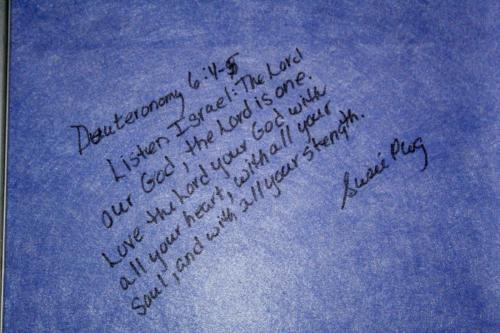 Deuteronomy 6:4-5
Listen Israel: The Lord
our God, the Lord is one.
Love the Lord your God with
all your heart, with all your
Soul, and with all your strength.
Susie